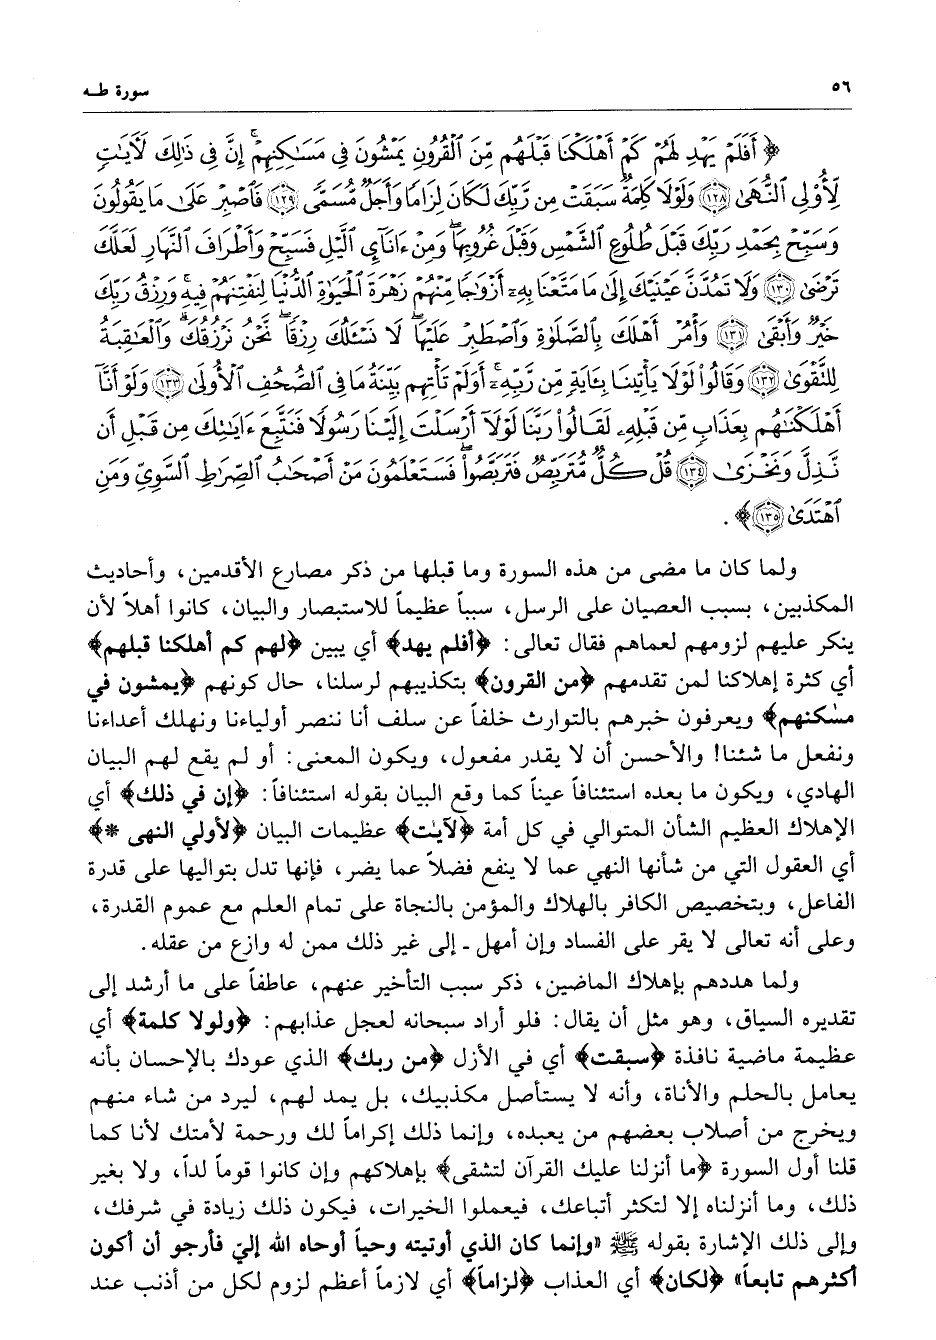 ٥٦
سورة طـه
﴿ أَفَلَمْ يَهْدِ لَهُمْ كَمْ أَهْلَكْنَا قَبْلَهُم مِّنَ ٱلْقُرُونِ يَمْشُونَ فِى مَسَٰكِنِهِمْ ۚ إِنَّ فِى ذَٰلِكَ لَءَايَٰتٍ
لِّأُو۟لِى ٱلنُّهَىٰ ١٢٨ وَلَوْلَا كَلِمَةٌ سَبَقَتْ مِن رَّبِّكَ لَكَانَ لِزَامًا وَأَجَلٌ مُّسَمًّى ١٢٩ فَٱصْبِرْ عَلَىٰ مَا يَقُولُونَ
وَسَبِّحْ بِحَمْدِ رَبِّكَ قَبْلَ طُلُوعِ ٱلشَّمْسِ وَقَبْلَ غُرُوبِهَا ۖ وَمِنْ ءَانَآئِ ٱلَّيْلِ فَسَبِّحْ وَأَطْرَافَ ٱلنَّهَارِ لَعَلَّكَ
تَرْضَىٰ ١٣٠ وَلَا تَمُدَّنَّ عَيْنَيْكَ إِلَىٰ مَا مَتَّعْنَا بِهِۦٓ أَزْوَٰجًا مِّنْهُمْ زَهْرَةَ ٱلْحَيَوٰةِ ٱلدُّنْيَا لِنَفْتِنَهُمْ فِيهِ ۚ وَرِزْقُ رَبِّكَ
خَيْرٌ وَأَبْقَىٰ ١٣١ وَأْمُرْ أَهْلَكَ بِٱلصَّلَوٰةِ وَٱصْطَبِرْ عَلَيْهَا ۖ لَا نَسْـَٔلُكَ رِزْقًا ۖ نَّحْنُ نَرْزُقُكَ ۗ وَٱلْعَٰقِبَةُ
لِلتَّقْوَىٰ ١٣٢ وَقَالُوا۟ لَوْلَا يَأْتِينَا بِـَٔايَةٍ مِّن رَّبِّهِۦٓ ۚ أَوَلَمْ تَأْتِهِم بَيِّنَةُ مَا فِى ٱلصُّحُفِ ٱلْأُولَىٰ ١٣٣ وَلَوْ أَنَّآ
أَهْلَكْنَٰهُم بِعَذَابٍ مِّن قَبْلِهِۦ لَقَالُوا۟ رَبَّنَا لَوْلَآ أَرْسَلْتَ إِلَيْنَا رَسُولًا فَنَتَّبِعَ ءَايَٰتِكَ مِن قَبْلِ أَن
نَّذِلَّ وَنَخْزَىٰ ١٣٤ قُلْ كُلٌّ مُّتَرَبِّصٌ فَتَرَبَّصُوا۟ ۖ فَسَتَعْلَمُونَ مَنْ أَصْحَٰبُ ٱلصِّرَٰطِ ٱلسَّوِىِّ وَمَنِ
ٱهْتَدَىٰ ١٣٥ ﴾ .
ولما كان ما مضى من هذه السورة وما قبلها من ذكر مصارع الأقدمين، وأحاديث
المكذبين، بسبب العصيان على الرسل، سبباً عظيماً للاستبصار والبيان، كانوا أهلاً لأن
ينكر عليهم لزومهم لعماهم فقال تعالى: ﴿أفلم يهد﴾ أي يبين ﴿لهم كم أهلكنا قبلهم﴾
أي كثرة إهلاكنا لمن تقدمهم ﴿من القرون﴾ بتكذيبهم لرسلنا، حال كونهم ﴿يمشون في
مسٰكنهم﴾ ويعرفون خبرهم بالتوارث خلفاً عن سلف أنا ننصر أولياءنا ونهلك أعداءنا
ونفعل ما شئنا! والأحسن أن لا يقدر مفعول، ويكون المعنى: أو لم يقع لهم البيان
الهادي، ويكون ما بعده استئنافاً عيناً كما وقع البيان بقوله استئنافاً: ﴿إن في ذلك﴾ أي
الإهلاك العظيم الشأن المتوالي في كل أمة ﴿لآيٰت﴾ عظيمات البيان ﴿لأولي النهى *﴾
أي العقول التي من شأنها النهي عما لا ينفع فضلاً عما يضر، فإنها تدل بتواليها على قدرة
الفاعل، وبتخصيص الكافر بالهلاك والمؤمن بالنجاة على تمام العلم مع عموم القدرة،
وعلى أنه تعالى لا يقر على الفساد وإن أمهل ـ إلى غير ذلك ممن له وازع من عقله.
ولما هددهم بإهلاك الماضين، ذكر سبب التأخير عنهم، عاطفاً على ما أرشد إلى
تقديره السياق، وهو مثل أن يقال: فلو أراد سبحانه لعجل عذابهم: ﴿ولولا كلمة﴾ أي
عظيمة ماضية نافذة ﴿سبقت﴾ أي في الأزل ﴿من ربك﴾ الذي عودك بالإحسان بأنه
يعامل بالحلم والأناة، وأنه لا يستأصل مكذبيك، بل يمد لهم، ليرد من شاء منهم
ويخرج من أصلاب بعضهم من يعبده، وإنما ذلك إكراماً لك ورحمة لأمتك لأنا كما
قلنا أول السورة ﴿ما أنزلنا عليك القرآن لتشقى﴾ بإهلاكهم وإن كانوا قوماً لداً، ولا بغير
ذلك، وما أنزلناه إلا لتكثر أتباعك، فيعملوا الخيرات، فيكون ذلك زيادة في شرفك،
وإلى ذلك الإشارة بقوله ﷺ «وإنما كان الذي أوتيته وحياً أوحاه الله إليّ فأرجو أن أكون
أكثرهم تابعاً» ﴿لكان﴾ أي العذاب ﴿لزاماً﴾ أي لازماً أعظم لزوم لكل من أذنب عند